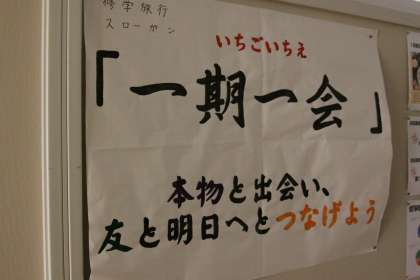 修学旅行
スローガン
いちごいちえ
「一期一会」
本物と出会い、
友と明日へとつなげよう